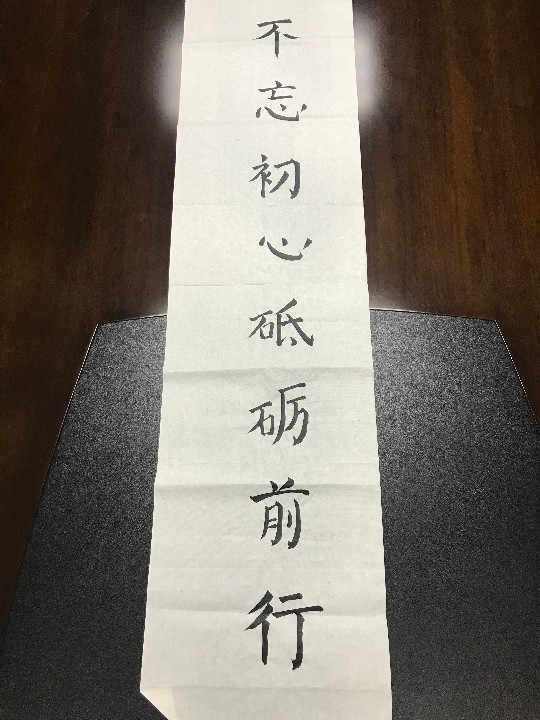 不忘初心砥砺前行